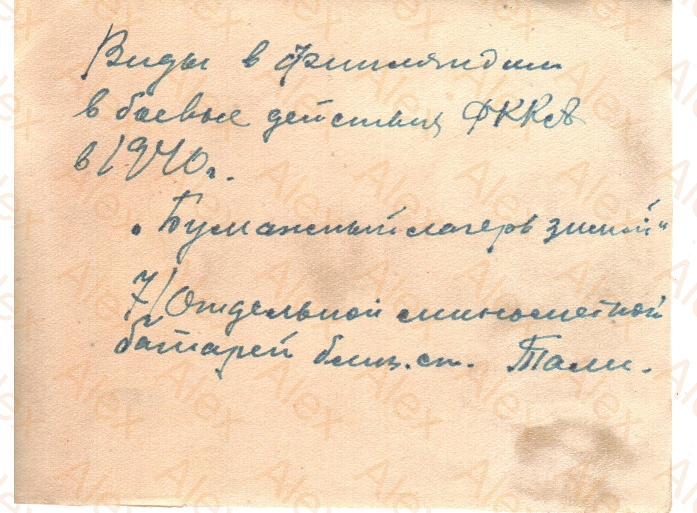 Виды в Финляндии
в боевые действия РККА
в 1940 г.
„Бумажный лагерь зимой“
7/ Отдельной минометной
батареи близ. ст. Тали.